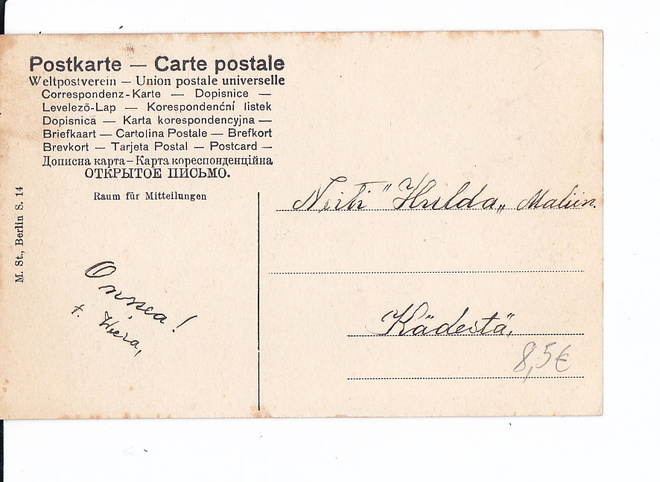 Postkarte — Carte postale
Weltpostverein — Union postale universelle
Correspondenz-Karte — Dopisnice —
Levelező-Lap — Korespondenční listek
Dopisnica — Karta korespondencyjna —
Briefkaart — Cartolina Postale — Brefkort
Brevkort — Tarjeta Postal — Postcard —
Дописна карта — Карта кореспонденційна
ОТКРЫТОЕ ПИСЬМО.
Raum für Mitteilungen
M. St., Berlin S. 14
Neiti "Hulda„ Maliin.
Onnea!
t.
Kädestä.
8,5€